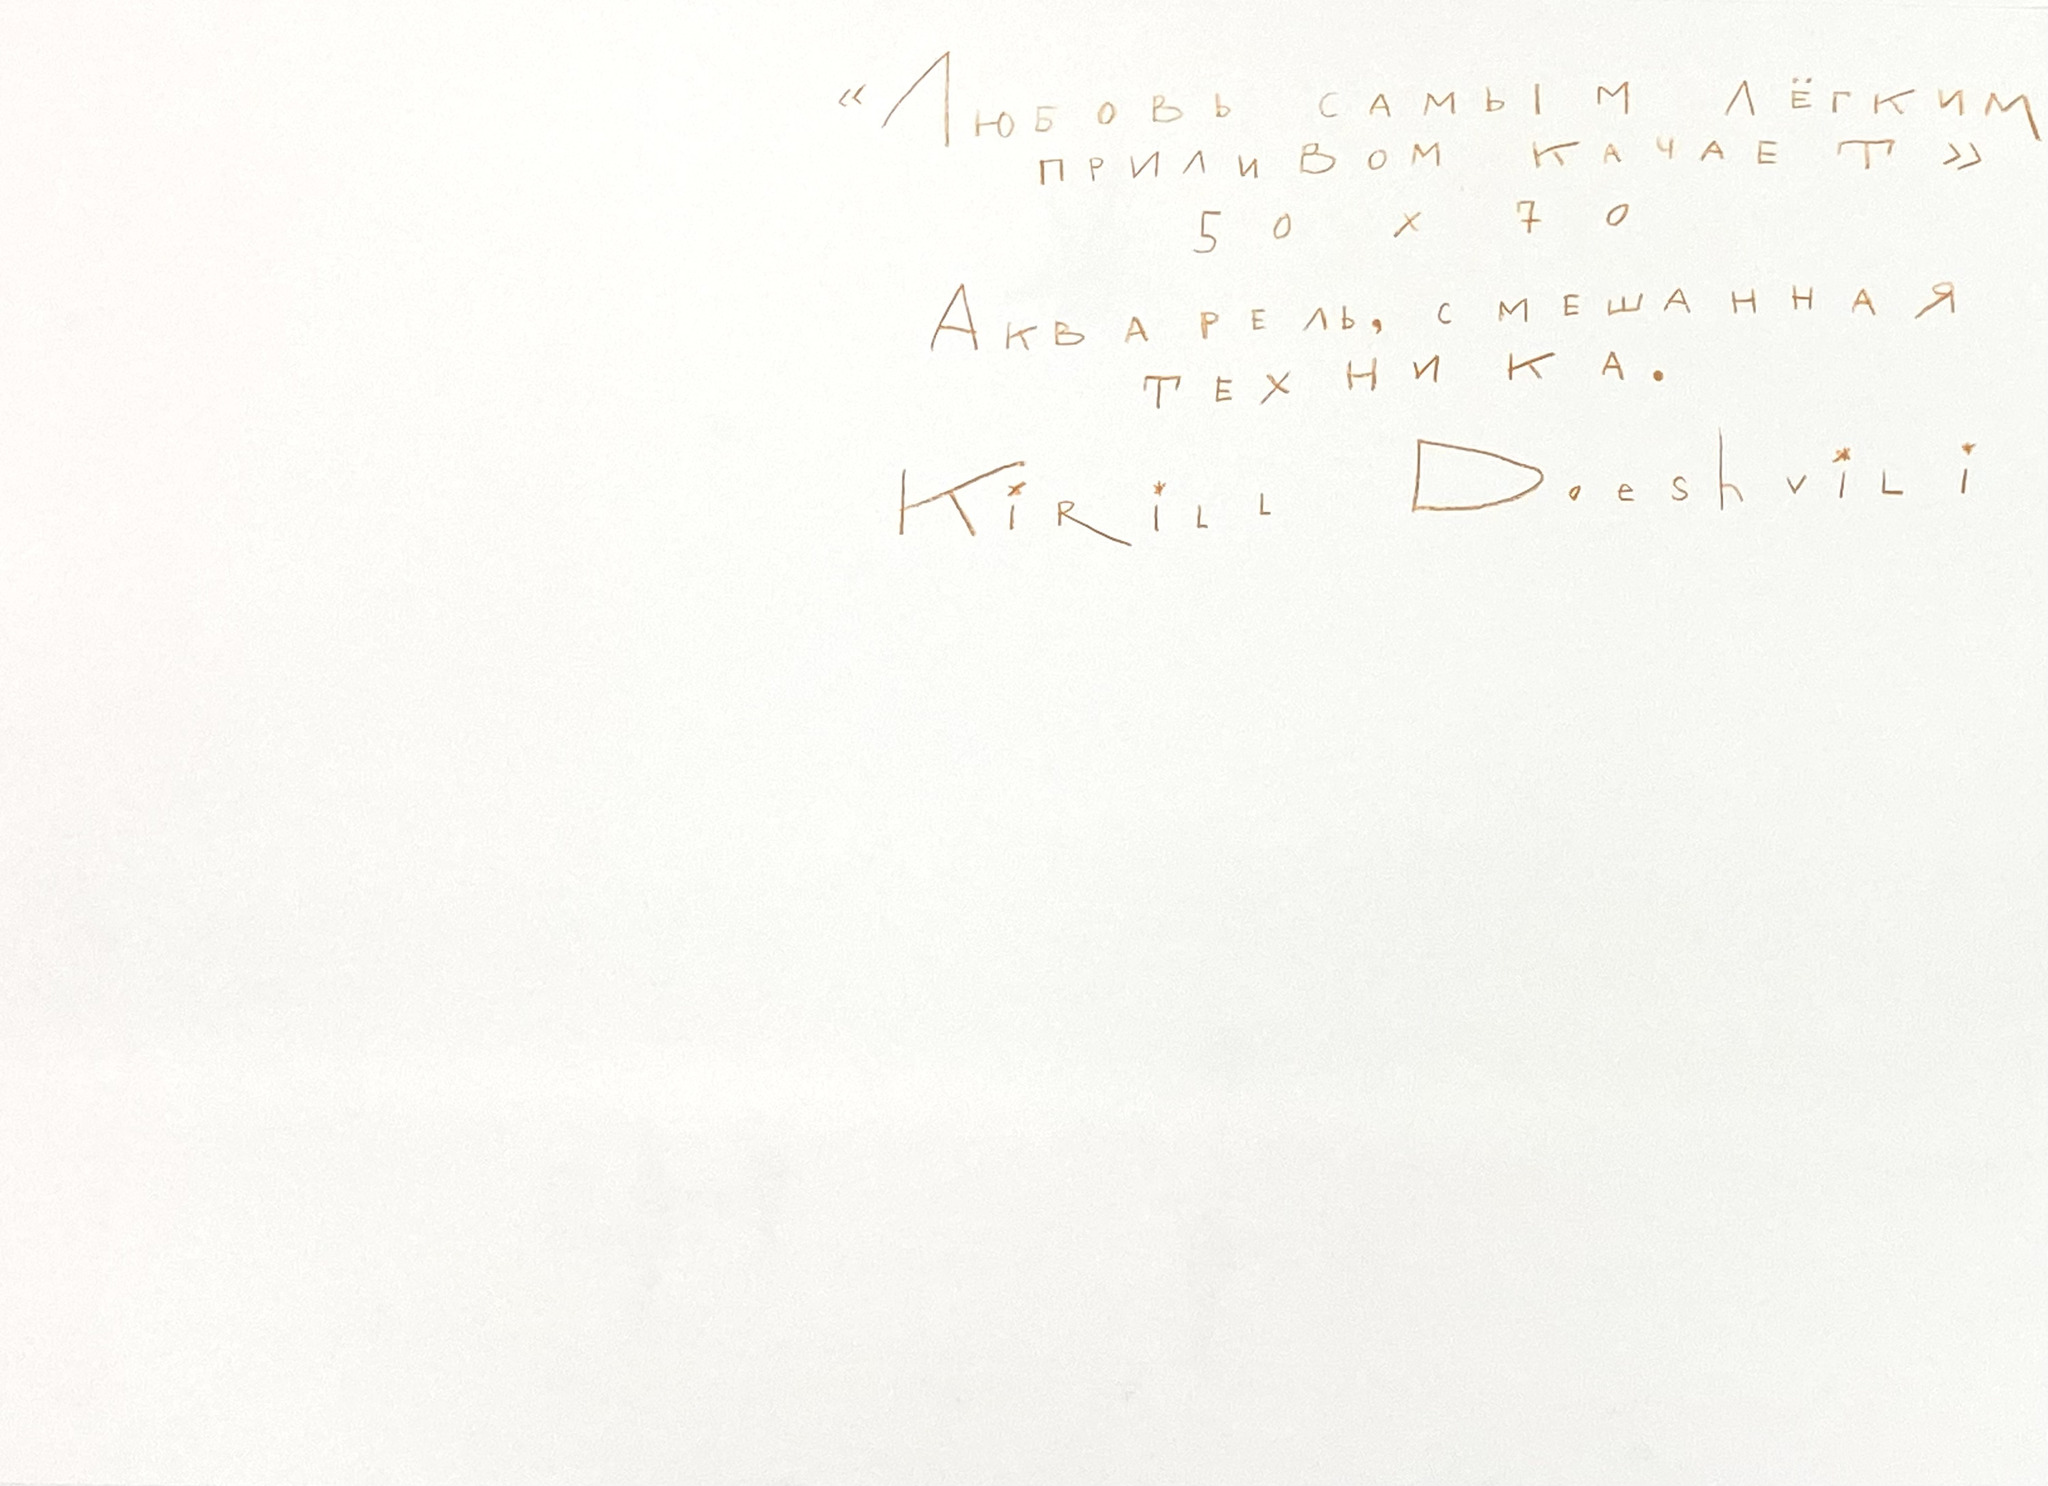 «Любовь самым лёгким
приливом качает»
50 х 70
Акварель, смешанная
техника.
Kirill Doeshvili